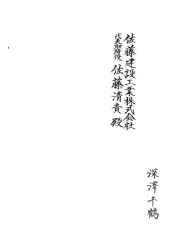 佐藤建設工業株式会社
代表取締役 佐藤清貴殿
深澤千鶴